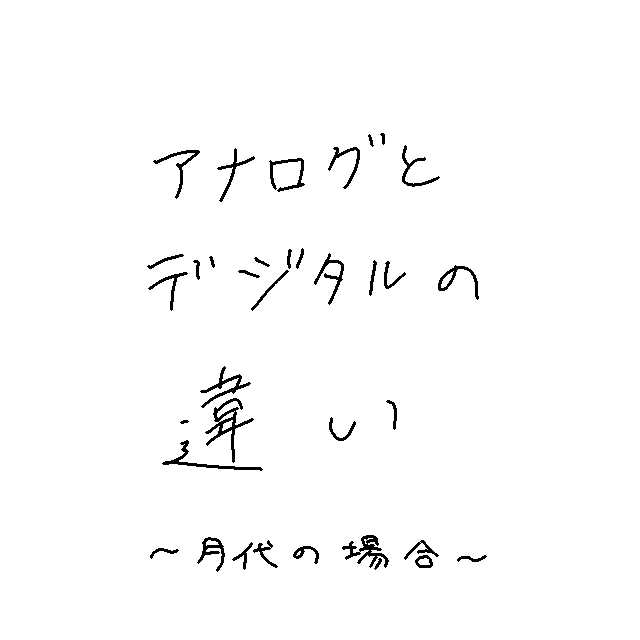 アナログと
デジタルの
違い
～月代の場合～